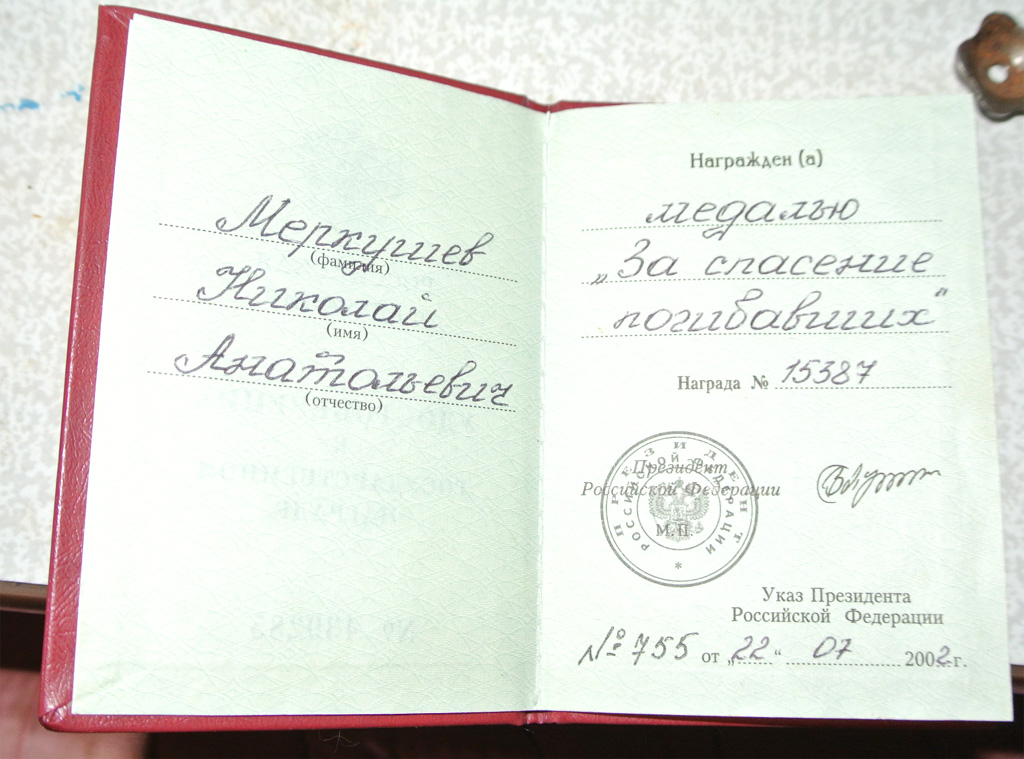 Меркушев
(фамилия)
Николай
(имя)
Анатольевич
(отчество)
Награжден (а)
медалью
„За спасение
погибавших"
Награда № 15387
Президент
Российской Федерации
ПРЕЗИДЕНТ
РОССИЙСКОЙ ФЕДЕРАЦИИ
М.П.
Указ Президента
Российской Федерации
№ 755 от „22“ 07 2002 г.